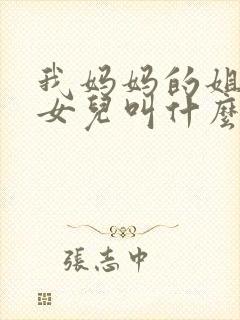 我妈妈的姐
女兒叫什麼
張志中